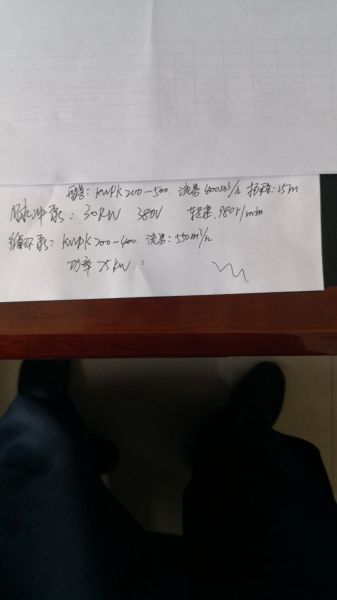 型号: KWPK200-500 流量 400m³/h 扬程: 15m
脉冲泵: 30KW 380V 转速 980r/min
循环泵: KWPK200-400 流量: 550m³/h
功率 75KW :